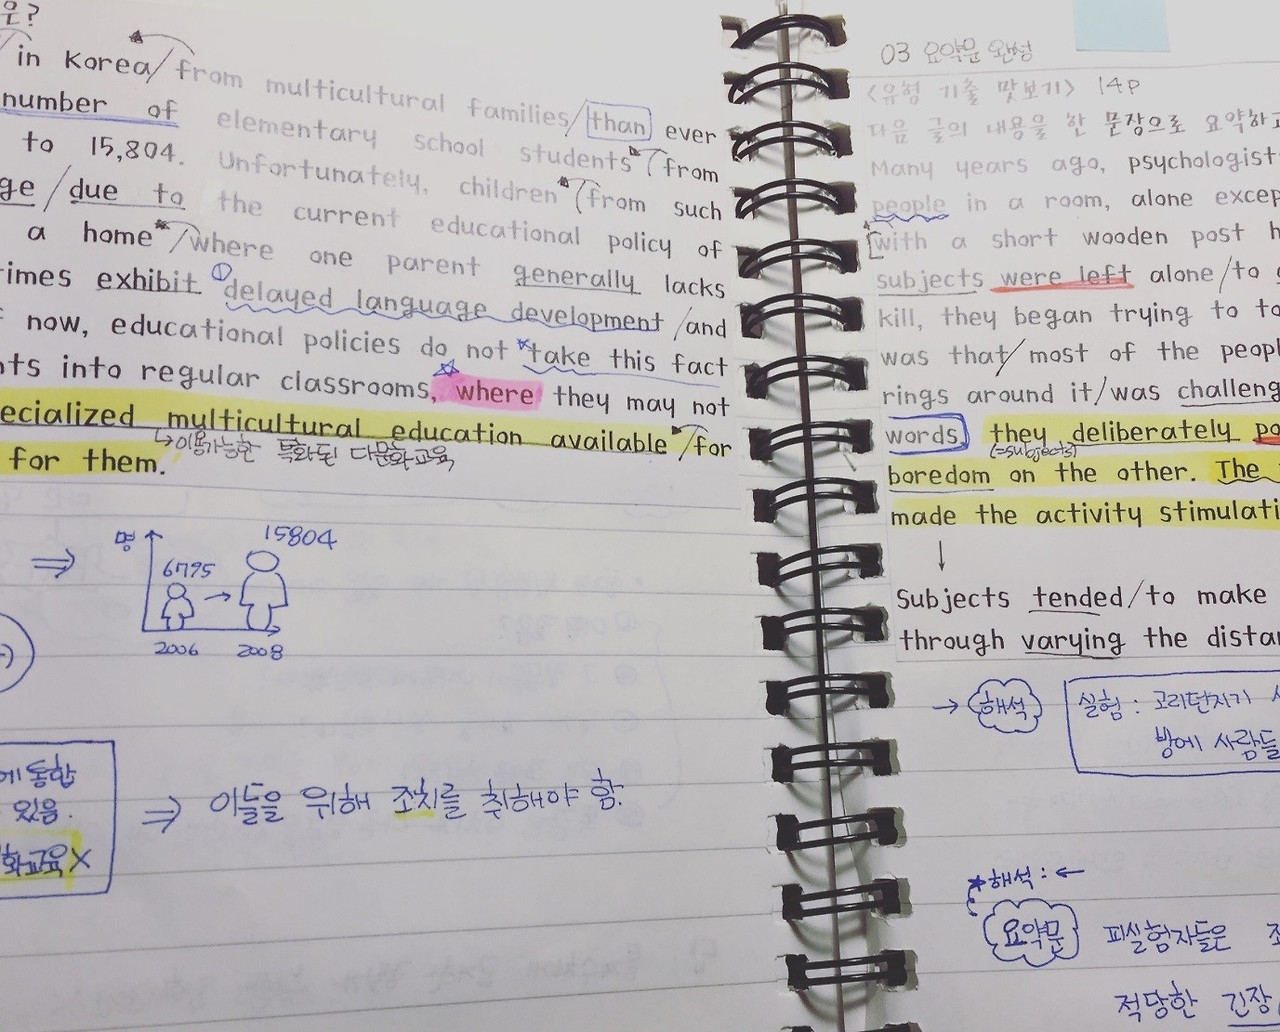 은?
in Korea/from multicultural families/than ever
number of elementary school students (from
to 15,804. Unfortunately, children (from such
ge/due to the current educational policy of
a home/where one parent generally lacks
imes exhibit ① delayed language development/and
now, educational policies do not *take this fact
nts into regular classrooms, where they may not
ecialized multicultural education available/for
for them. ↳이용가능한 특화된 다문화교육
⇒ 명 6795 → 15804
2006 2008
에 통합
있음.
화교육X
⇒ 이들을 위해 조치를 취해야 함.
03 요약문 완성
<유형 기출 맛보기> 14p
다음 글의 내용을 한 문장으로 요약하고
Many years ago, psychologist
people in a room, alone excep
with a short wooden post h
subjects were left alone/to
kill, they began trying to to
was that/most of the peopl
rings around it/was challeng
words, they deliberately po
(=subjects)
boredom on the other. The
made the activity stimulati
↓
Subjects tended/to make
through varying the distan
→ 해석 실험: 고리던지기
방에 사람들
*해석: ←
요약문 피실험자들은
적당한 긴장